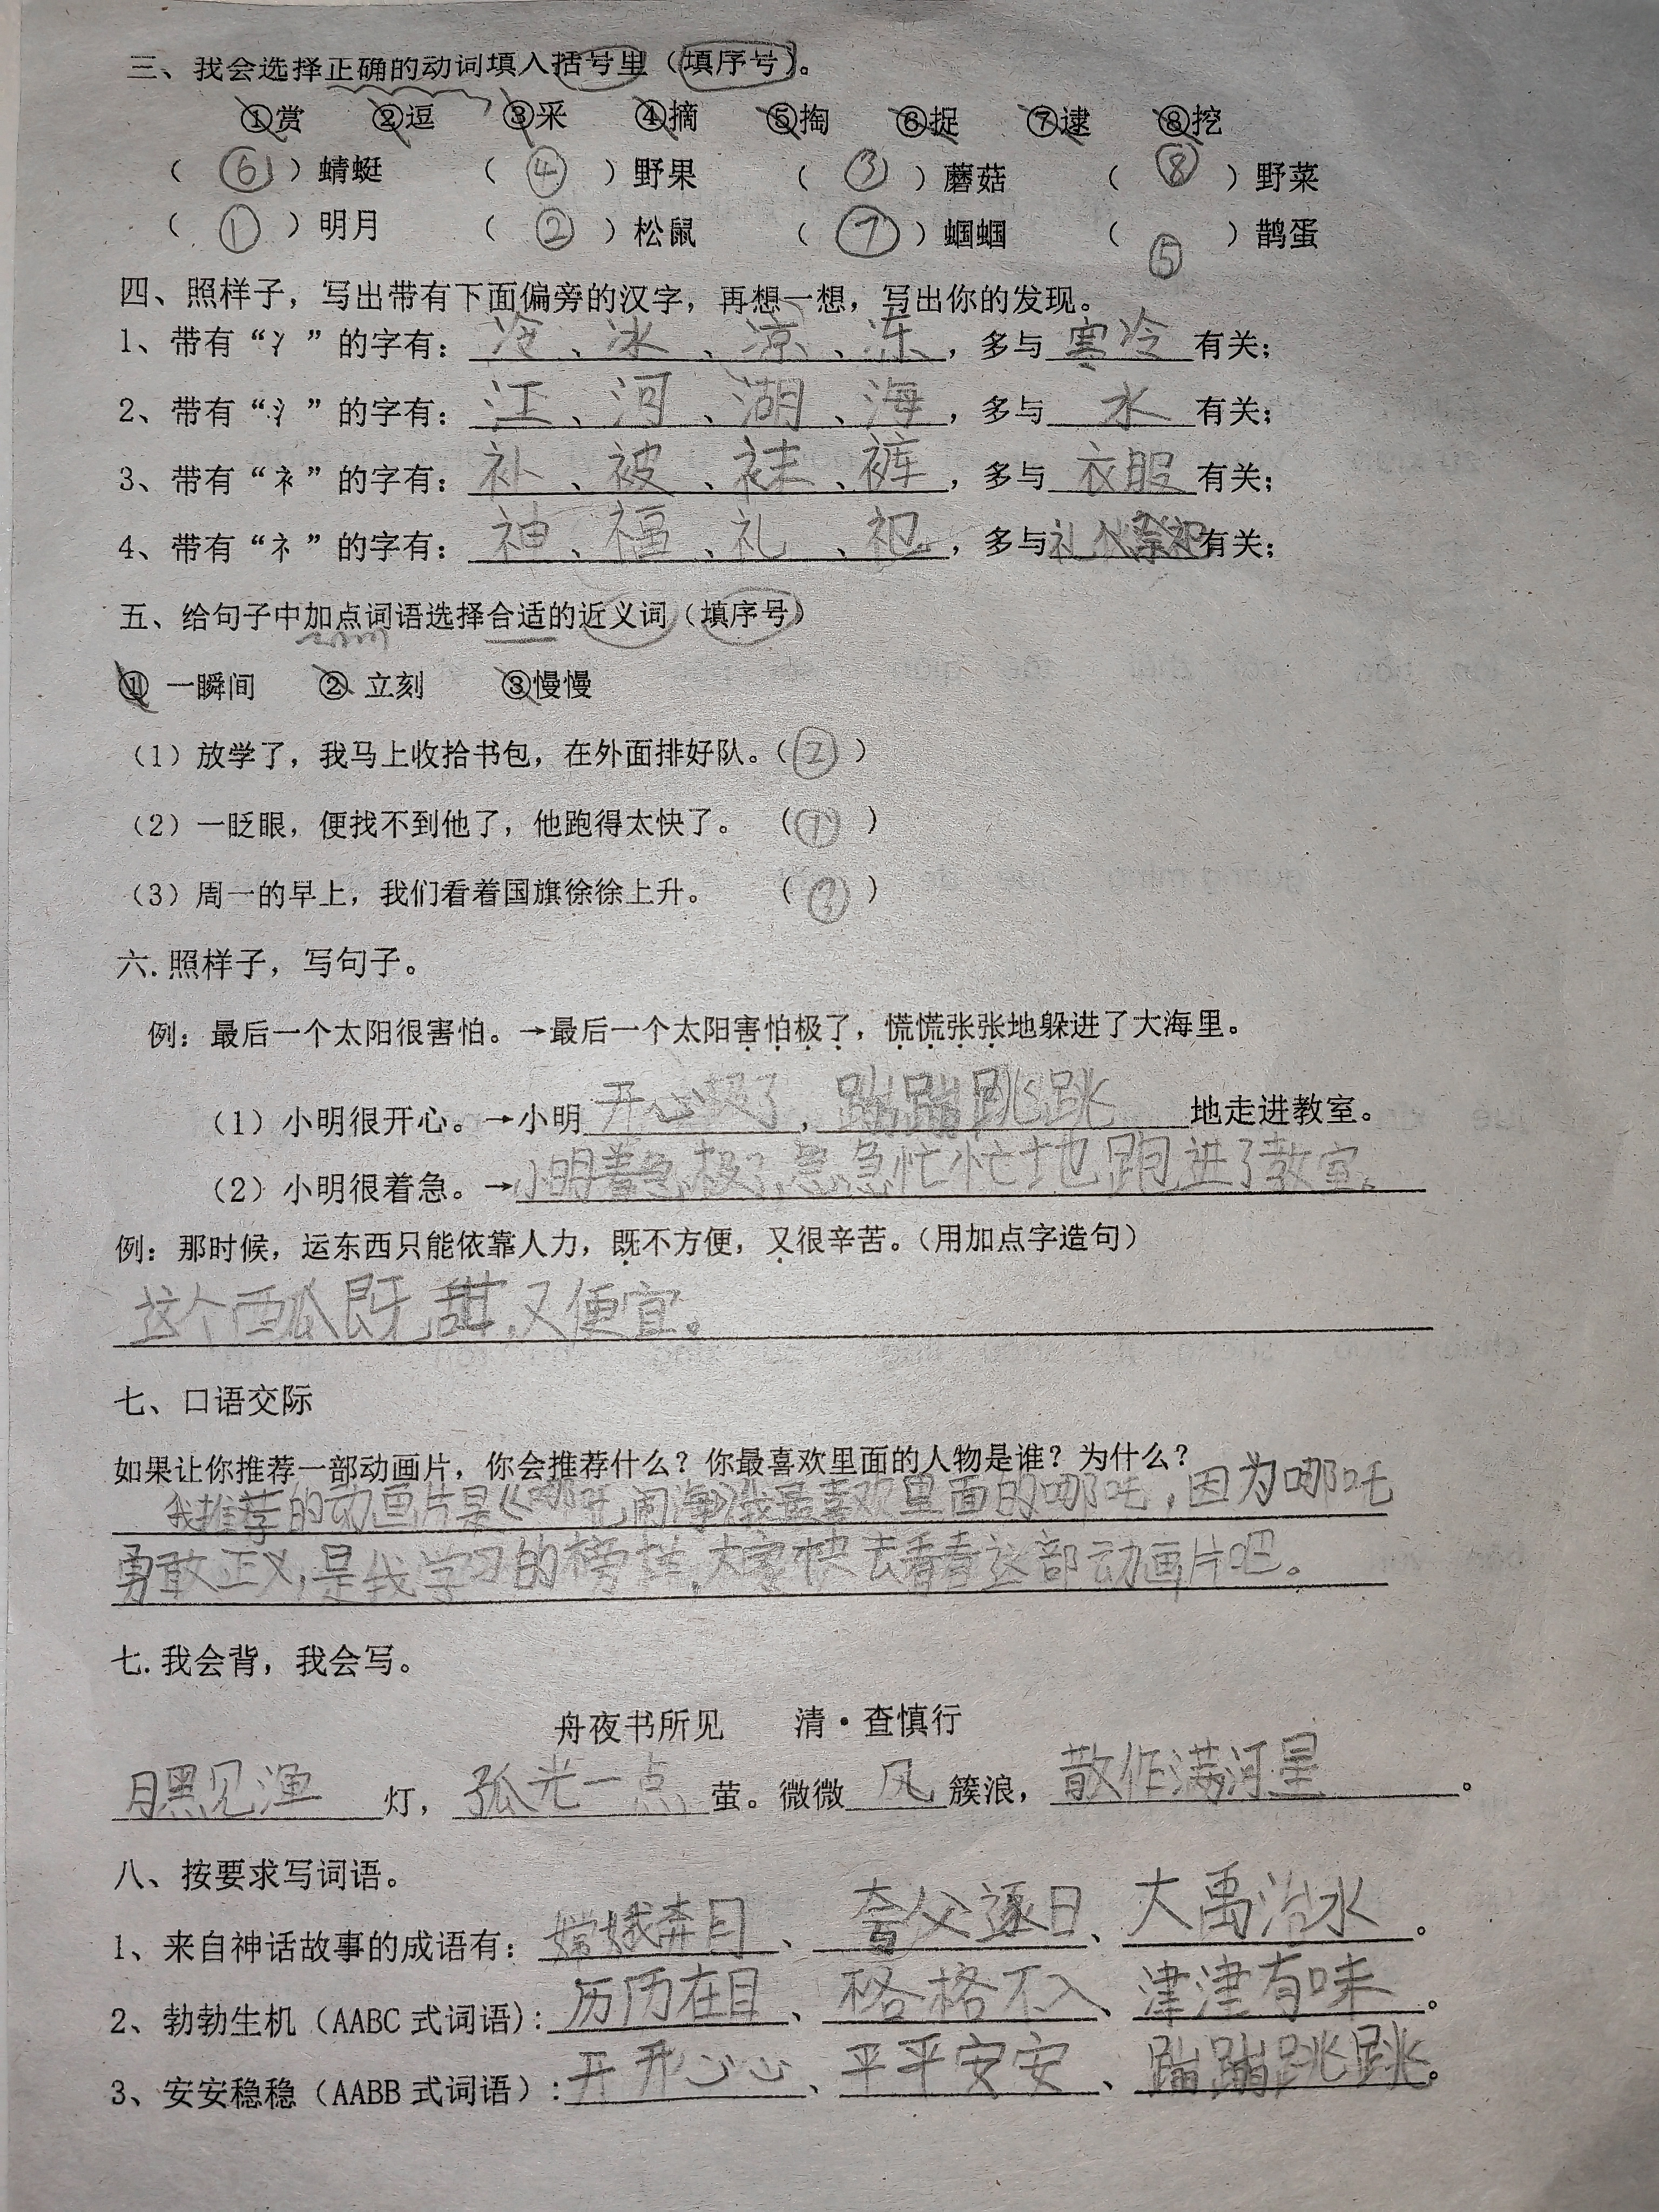 三、我会选择正确的动词填入括号里（填序号）。
①赏 ②逗 ③采 ④摘 ⑤掏 ⑥捉 ⑦逮 ⑧挖
（⑥）蜻蜓 （④）野果 （③）蘑菇 （⑧）野菜
（①）明月 （②）松鼠 （⑦）蝈蝈 （⑤）鹊蛋
四、照样子，写出带有下面偏旁的汉字，再想一想，写出你的发现。
1、带有“冫”的字有：冷、冰、凉、冻，多与寒冷有关；
2、带有“氵”的字有：江、河、湖、海，多与水有关；
3、带有“衤”的字有：补、被、袜、裤，多与衣服有关；
4、带有“礻”的字有：神、福、礼、祀，多与礼仪祭祀有关；
五、给句子中加点词语选择合适的近义词（填序号）
① 一瞬间 ② 立刻 ③慢慢
（1）放学了，我马上收拾书包，在外面排好队。（②）
（2）一眨眼，便找不到他了，他跑得太快了。（①）
（3）周一的早上，我们看着国旗徐徐上升。（③）
六.照样子，写句子。
例：最后一个太阳很害怕。→最后一个太阳害怕极了，慌慌张张地躲进了大海里。
（1）小明很开心。→小明开心极了，蹦蹦跳跳地走进教室。
（2）小明很着急。→小明着急极了，急急忙忙地跑进了教室。
例：那时候，运东西只能依靠人力，既不方便，又很辛苦。（用加点字造句）
这个西瓜既甜，又便宜。
七、口语交际
如果让你推荐一部动画片，你会推荐什么？你最喜欢里面的人物是谁？为什么？
我推荐的动画片是《哪吒闹海》我最喜欢里面的哪吒，因为哪吒
勇敢正义，是我学习的榜样，大家快去看看这部动画片吧。
七.我会背，我会写。
舟夜书所见 清·查慎行
月黑见渔灯，孤光一点萤。微微风簇浪，散作满河星。
八、按要求写词语。
1、来自神话故事的成语有：嫦娥奔月、夸父逐日、大禹治水。
2、勃勃生机（AABC式词语）：历历在目、格格不入、津津有味。
3、安安稳稳（AABB式词语）：开开心心、平平安安、蹦蹦跳跳。